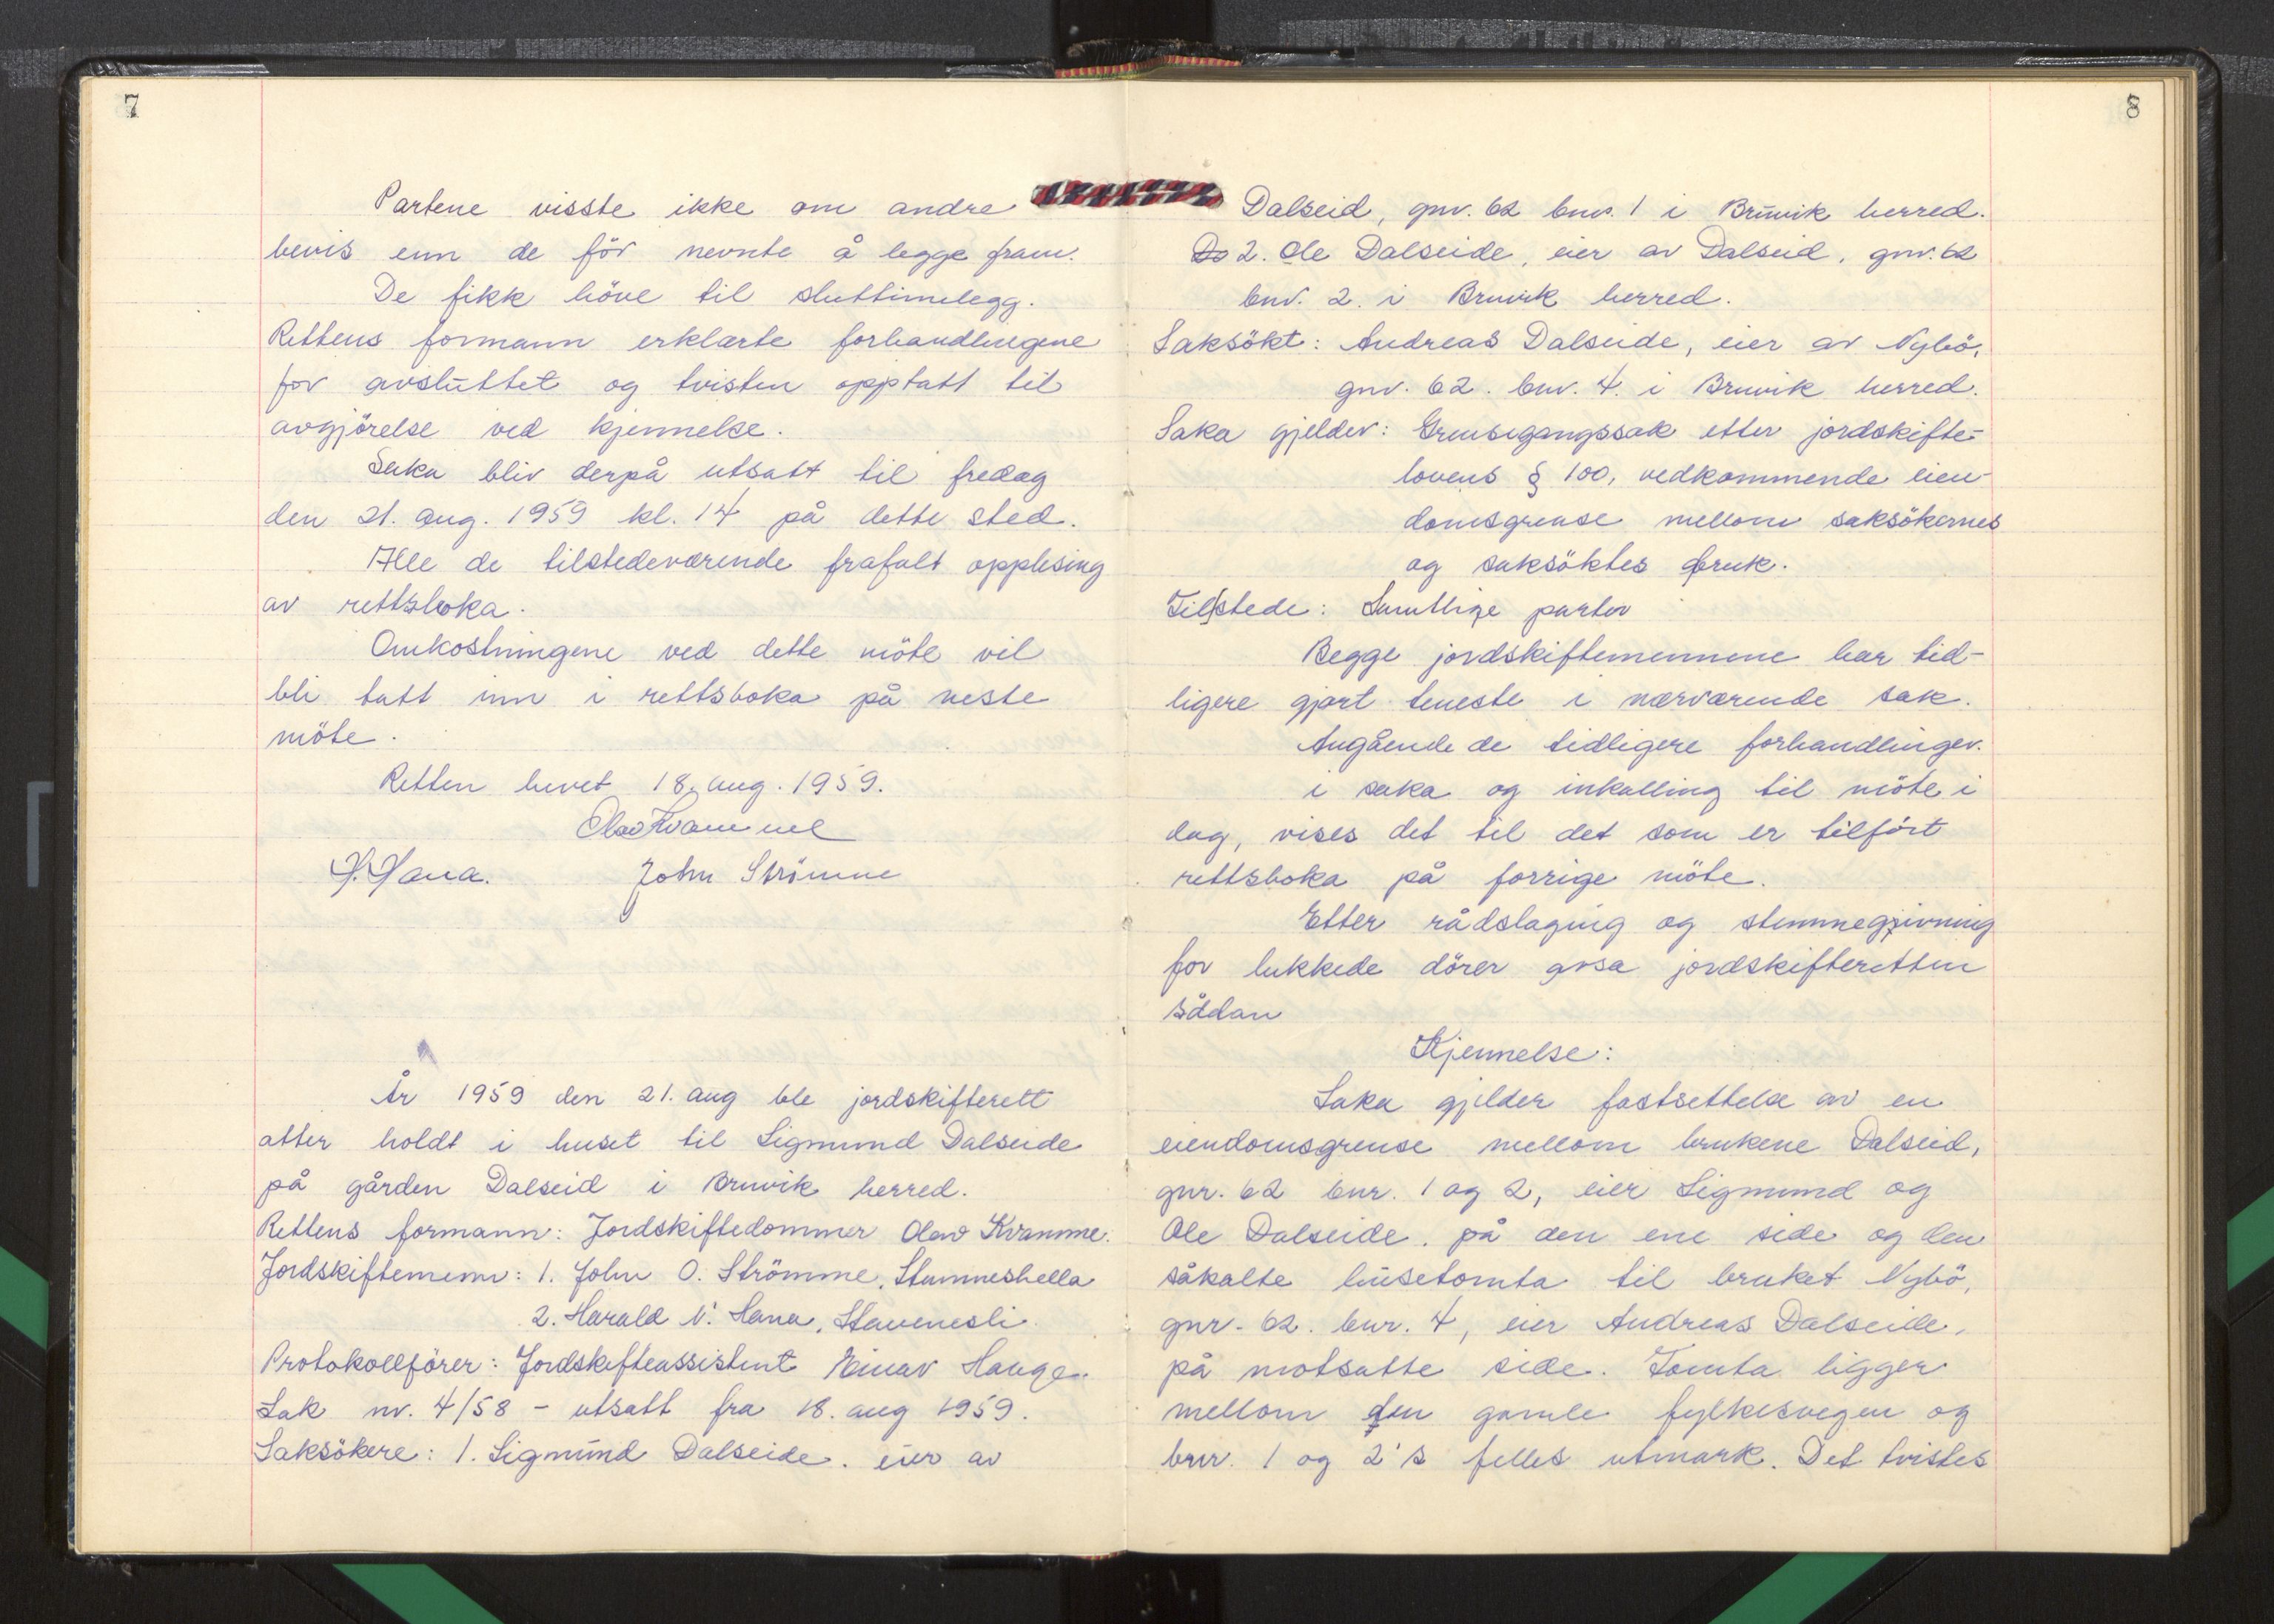 7
Partene visste ikke om andre
bevis enn de för nevnte å legge fram.
De fikk höve til sluttinnlegg.
Rettens formann erklærte forhandlingene
for avsluttet og tvisten opptatt til
avgjörelse ved kjennelse.
Saka bliv derpå utsatt til fredag
den 21. aug. 1959 kl. 14 på dette sted.
Alle de tilstedeværende frafalt opplesing
av rettsboka.
Omkostningene ved dette möte vil
bli tatt inn i rettsboka på neste
möte.
Retten hevet 18. aug. 1959.
Olav Kvamme
H. Hana. John Strömme
År 1959 den 21. aug ble jordskifterett
atter holdt i huset til Sigmund Dalseide
på gården Dalseid i Bruvik herred.
Rettens formann: Jordskiftedommer Olav Kvamme.
Jordskiftemenn: 1. John O. Strömme, Stamneshella
2. Harald N. Hana, Stavenesli
Protokollförer: Jordskifteassistent Einar Hauge.
Sak nr. 4/58 - utsatt fra 18. aug 1959.
Saksökere: 1. Sigmund Dalseide. eier av
8
Dalseid, gnr. 62 bnr. 1 i Bruvik herred.
Do 2. Ole Dalseide, eier av Dalseid, gnr. 62
bnr. 2. i Bruvik herred.
Saksökt: Andreas Dalseide, eier av Nybö,
gnr. 62. bnr. 4. i Bruvik herred.
Saka gjelder: Grensegangssak etter jordskifte-
lovens § 100, vedkommende eien-
domsgrense mellom saksökernes
og saksöktes bruk.
Tilstede: Samtlige parter
Begge jordskiftemennene har tid-
ligere gjort teneste i nærværende sak.
Angående de tidligere forhandlinger.
i saka og inkalling til möte i
dag, vises det til det som er tilfört
rettsboka på forrige möte.
Etter rådslaging og stemmegivning
for lukkede dörer avsa jordskifteretten
sådan
Kjennelse:
Saka gjelder fastsettelse av en
eiendomsgrense mellom brukene Dalseid,
gnr. 62 bnr. 1 og 2, eier Sigmund og
Ole Dalseide. på den ene side og den
såkalte husetomta til bruket Nybö,
gnr. 62. bnr. 4, eier Andreas Dalseide,
på motsatte side. Tomta ligger
mellom den gamle fylkesvegen og
bnr. 1 og 2's felles utmark. Det tvistes